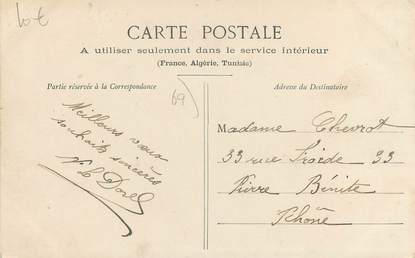 10€
CARTE POSTALE
A utiliser seulement dans le service intérieur
(France, Algérie, Tunisie)
Partie réservée à la Correspondance
69
Meilleurs vœux
souhaits sincères
Dorel
Adresse du Destinataire
Madame Chevrot
33 rue Froide 33
Pierre Bénite
Rhône